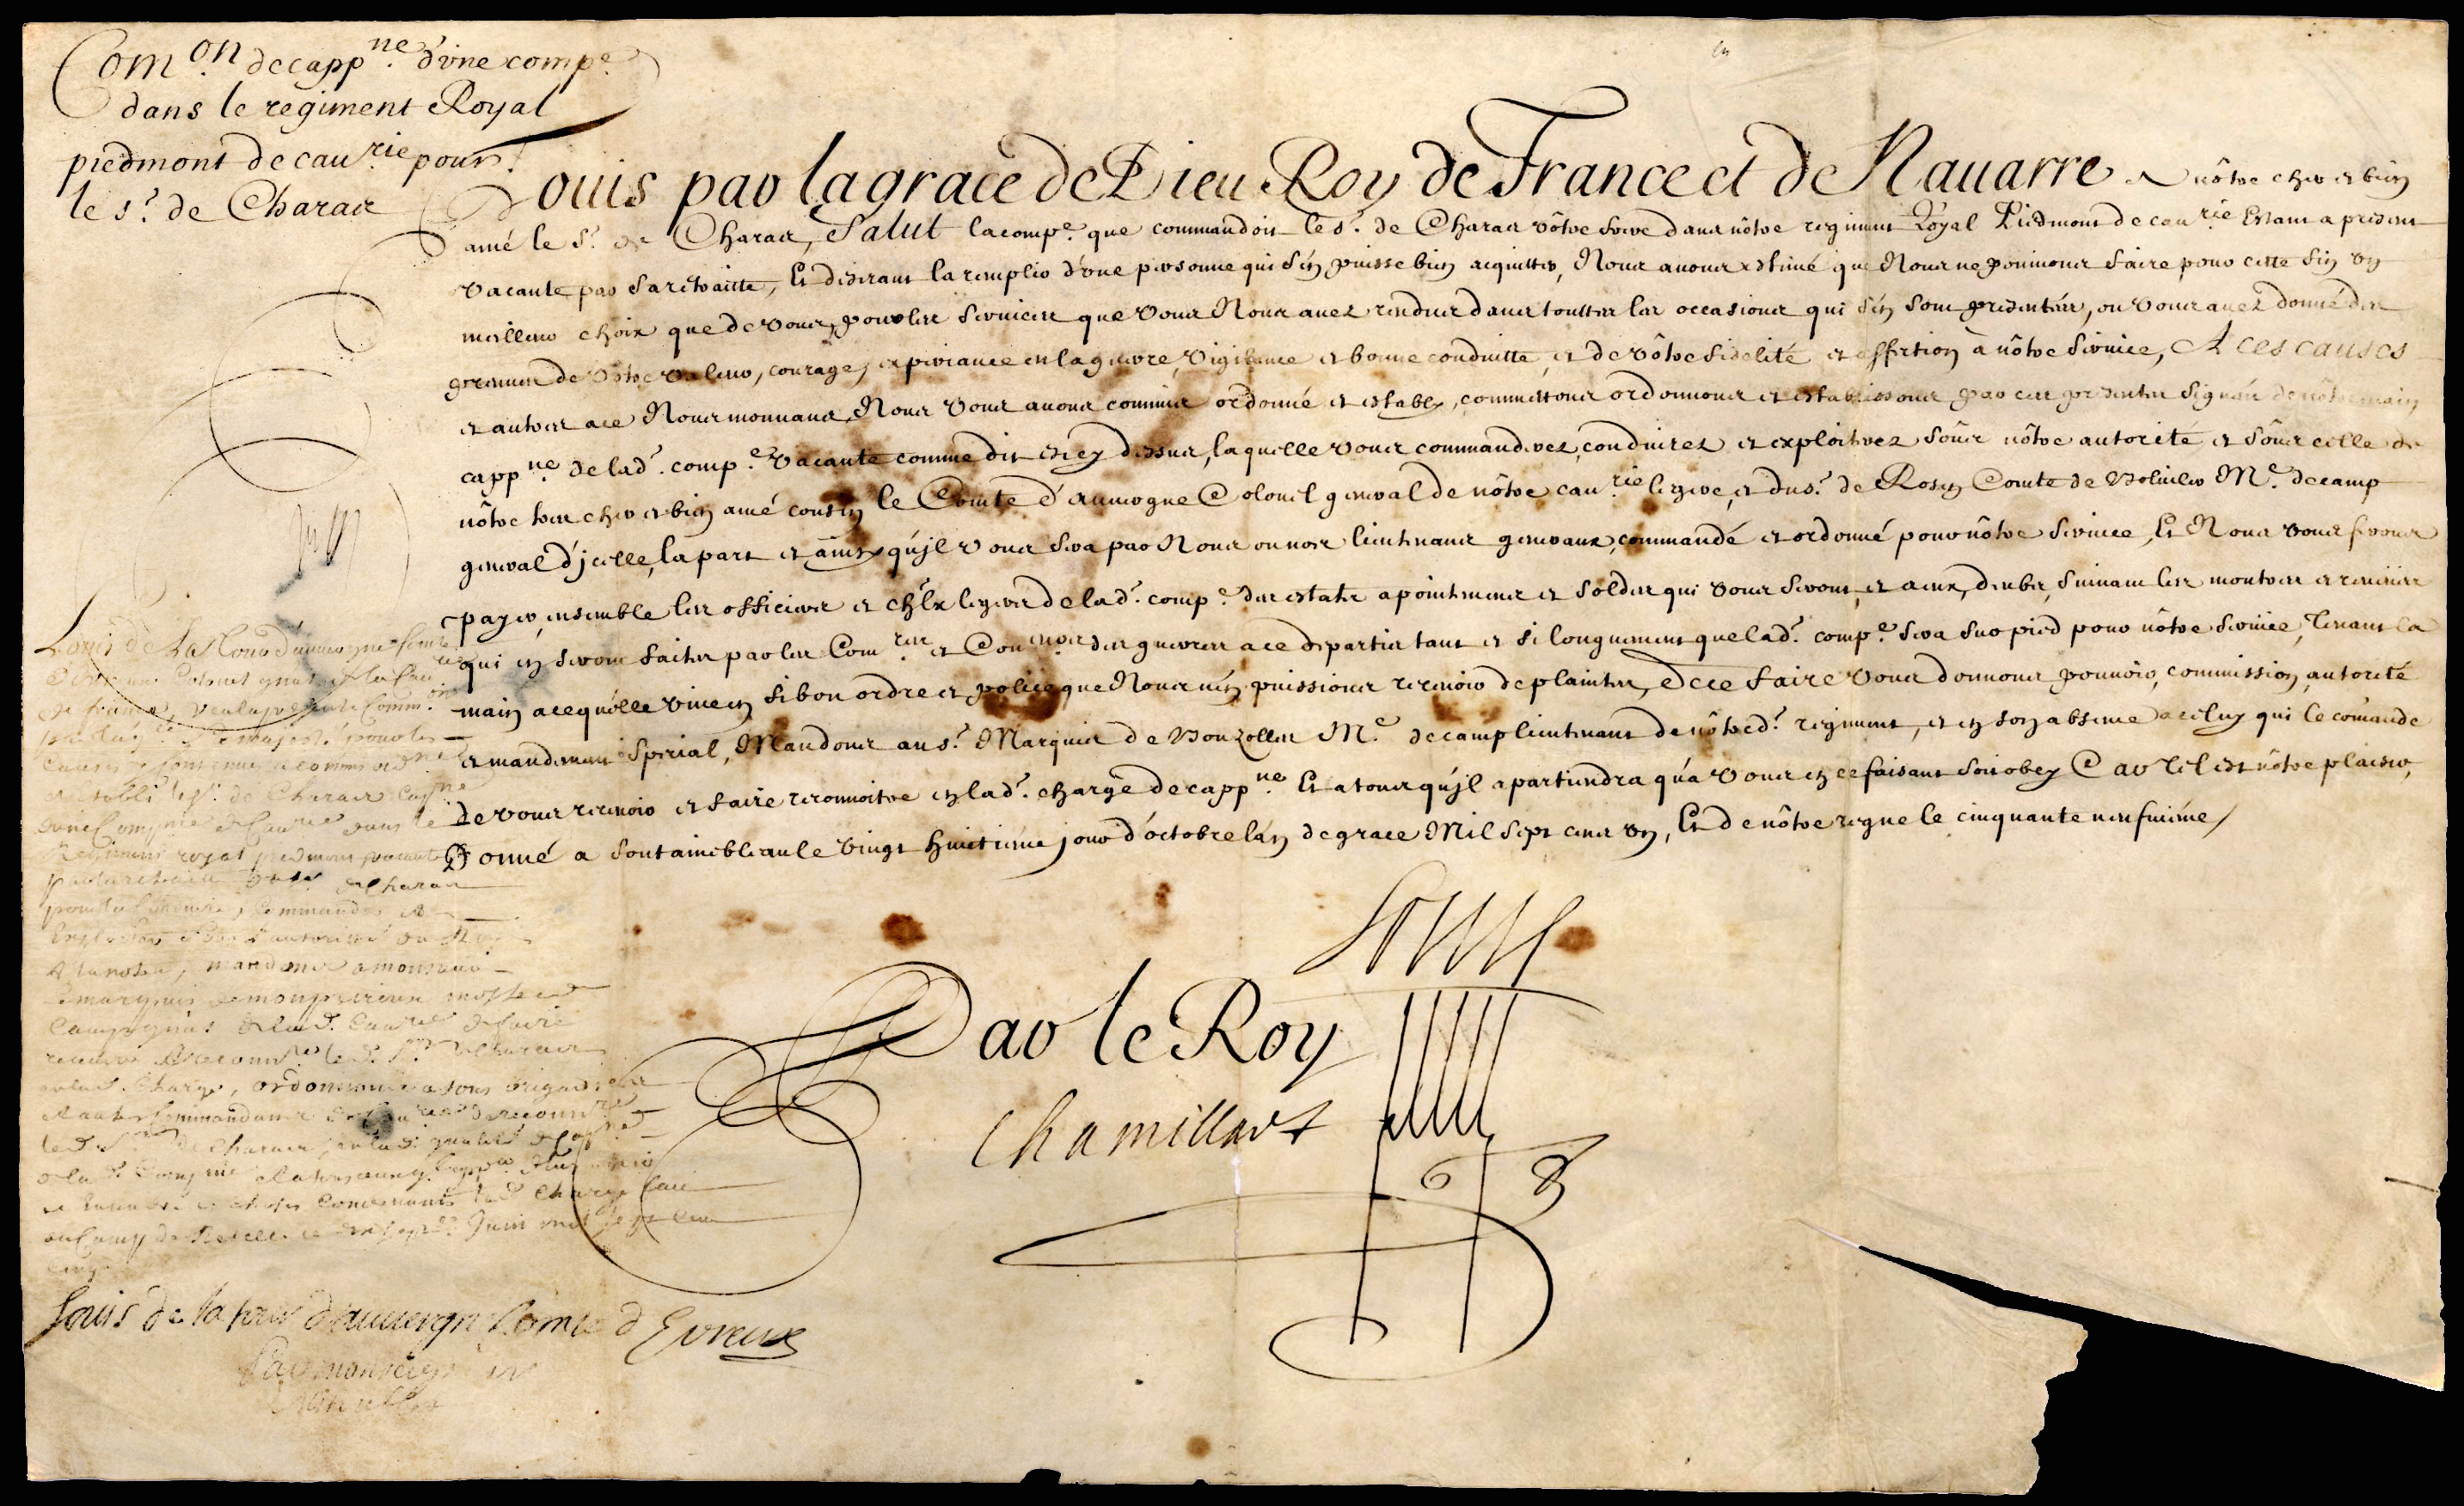 Com.on de capp.ne d'vne comp.e
dans le regiment Royal
piedmont de cau.rie pour
le s.r de Charaix
Louis par la grace de Dieu Roy de France et de Nauarre A nôtre cher et bien
amé le S.r de Charaix, Salut la comp.e que commandoit le s.r de Charaix vôtre frere dans nôtre regiment Royal Piedmont de cau.rie Estant a present
vacante par sa retraitte, Et desirant la remplir d'vne personne qui s'en puisse bien acquitter, Nous auons estimé que Nous ne pouuions faire pour cette fin vn
meilleur choix que de vous, pour les seruices que vous Nous auez rendus dans touttes les occasions qui s'en sont presentées, ou vous auez donné des
preuues de vôtre valeur, courage, experiance en la guerre, vigilance et bonne conduitte, et de vôtre fidelité et affection à nôtre seruice, A ces causes
et autres a ce Nous mouuans, Nous vous auons commis ordonné et estably, commettons ordonnons et establissons par ces presentes signées de nôtre main
capp.ne de lad. comp.e vacante comme dit est cy dessus, laquelle vous commanderez, conduirez et exploiterez soûs nôtre autorité et soûs celle de
nôtre tres cher et bien amé cousin le Comte d'auuergne Colonel general de nôtre cau.rie legere, et du s.r de Rosen Comte de Bolluiler M.e de camp
general d'jcelle, la part et ainsy qu'jl vous sera par Nous ou nos lieutenans generaux, commandé et ordonné pour nôtre seruice, Et Nous vous ferons
payer, ensemble les officiers et ch'lx legers de lad. comp.e des estats apointemens et soldes qui vous seront, et a eux, deubs, suiuant les montres et reueües
qui en seront faites par les Com.res et Con.eurs des guerres a ce departis tant et si longuement que lad. comp.e sera sur pied pour nôtre seruice, Tenant la
main a ce qu'elle viue en si bon ordre et police que Nous n'en puissions receuoir de plaintes, De ce faire vous donnons pouuoir, commission, autorité
et mandement special, Mandons au s.r Marquis de M.e de camp lieutenant de nôtred. regiment, et en son absence a celuy qui le comande
de vous receuoir et faire reconnoitre en lad. charge de capp.ne Et a tous qu'jl apartiendra qu'a vous en ce faisant soit obey Car tel est nôtre plaisir,
Donné a fontainebleau le vingt huictiéme jour d'octobre l'an de grace Mil sept cens vn, Et de nôtre regne le cinquante neufuiéme /
Louis
Par le Roy
Chamillart
Louis de La Tour d'auuergne
Colonel gnal de la Cau.rie
de france, veu la presente Comm.on
de sa majesté pour les
Causes y contenues a commis ord.né
et establi le s.r de Charaix Cap.ne
d'vne Compnie de Cau.rie dans le
Regiment royal piedmont vacante
par la retraitte du s.r de Charaix
commander et
Exploiter soûs l'autorité du Roy
Et la notre, mandons a monsieur
Le marquis de monpeiroux mestre de
Camp gnal de lad. Cau.rie de faire
le d. S.r de Charaix
en lad. Charge, ordonnons a tous brigadiers
et autres Commandans de Cau.rie de reconn.re
le d. S.r de Charaix, en lad. qualité de Cap.ne
de lad. Compnie
et choses Concernants lad. Charge fait
au Camp de Juin mil sept cens
cinq
Louis de la tour dauuergne Comte d Evreux
Par monseigneur